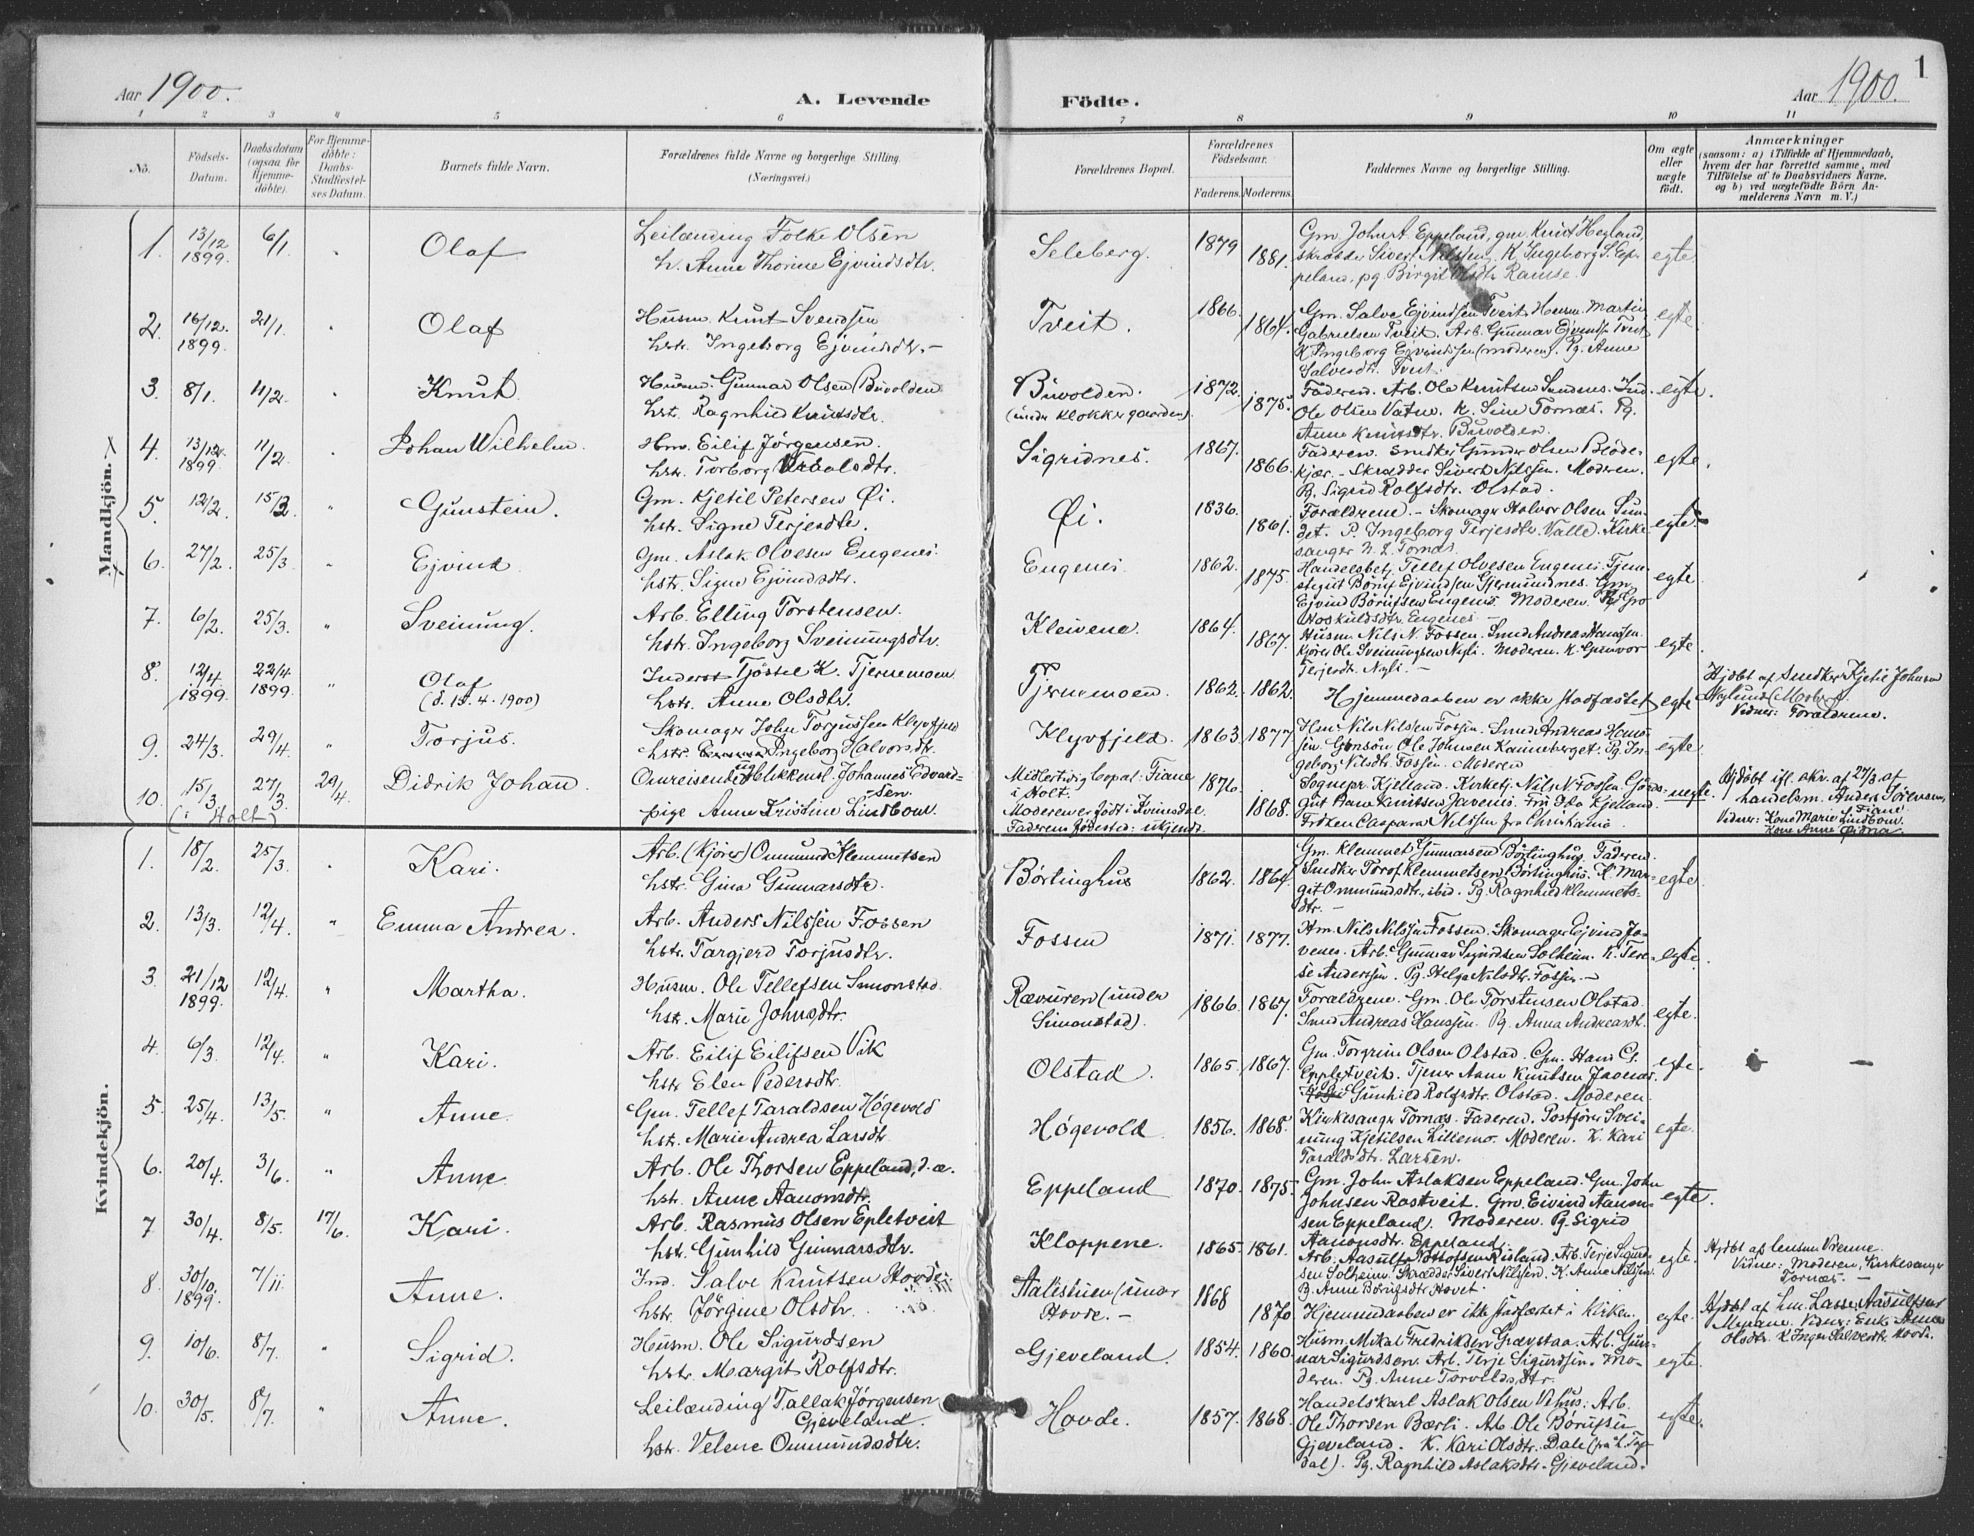 Aar 1900.
A. Levende
Födte.
Aar 1900.
1
1 2 3 4 5 6 7 8 9 10 11
No.
Födsels-
Datum.
Daabsdatum
(ogsaa for
Hjemme-
döbte).
For Hjemme-
döbte:
Daabs-
Stadfæstel-
ses Datum.
Barnets fulde Navn.
Forældrenes fulde Navne og borgerlige Stilling.
(Næringsvei.)
Forældrenes Bopæl.
Forældrenes
Födselsaar.
Faderens. Moderens.
Faddernes Navne og borgerlige Stilling.
Om ægte
eller
uægte
födt.
Anmærkninger
(saasom: a) i Tilfælde af Hjemmedaab,
hvem der har forrettet samme, med
Tilföielse af to Daabsvidners Navne.
og b) ved uægtefödte Börn An-
melderens Navn m. V.)
Mandkjön.
1. 13/12 1899. 6/1 " Olaf
Leilænding Folke Olsen
h. Anne Thorine Ejvindsdtr.
Seleberg. 1879 1881.
Gm. John A. Eppeland, gm. Knut Hegland,
skrædder Sivert Nilssen. K. Ingeborg S. Ep-
peland, pg Birgit Olsdtr. Ramse.
egte
2. 16/12 1899. 21/1 " Olaf
Husm. Knut Svendsen
hstr. Ingeborg Ejvindsdtr.
Tveit. 1866. 1864.
Gm. Salve Ejvindsen Tveit. Husm. Martin
Gabrielsen Tveit. Arb. Gunnar Ejvinds. Tveit
K. Ingeborg (moderen). Pg. Anne
Salvesdtr. Tveit.
egte
3. 8/1. 11/2. " Knut
Husm. Gunnar Olsen Buvolden
hst. Ragnhild Knutsdtr.
Buvolden.
(under Klokkergaarden). 1872. 1875.
Faderen. Arb. Ole Knutsen
Ole Olsen Vatne. K. Sine Tornæs. Pg.
Anne Knutsdtr. Buvolden.
egte.
4. 13/12 1899. 11/2 " Johan Wilhelm.
Hm. Eilif Jørgensen.
hstr. Torborg
Sigridnes. 1867. 1866.
Faderen. Smdkr Gunder Olsen Bløde-
kjær. Skrædder Sivert Nilssen. Moderen.
P. Sigrid Rolfsdtr. Olstad.
egte.
5. 12/2. 15/3. " Gunstein.
Gm. Kjetil Petersen Øi.
hstr. Signe Terjesdtr.
Øi. 1836. 1861.
Forældrene. Skomager Halvor Olsen Sun-
det. P. Ingeborg Terjesdtr. Valle. Kirke-
sanger Tornæs.
egte
6. 27/2. 25/3. " Ejvind.
Gm. Aslak Olvesen Eugenes.
hstr. Signe Ejvindsdtr.
Eugenes. 1862. 1875.
Handelsbetj. Tellef Olvesen Eugenes. Tjen-
stegut Børuf Ejvindsen Gjermundnes. Gm.
Ejvind Børufsen Eugenes. Moderen. Pg. Gro
Hoskuldsdtr. Eugenes
egte
7. 6/2. 25/3. " Sveinung.
Arb. Elling Torstensen.
hstr. Ingeborg Sveinungsdtr.
Kleivene. 1864. 1867.
Husm. Nils N. Fossen. Smed Andreas Hanssen.
Kjører Ole Sveinungsen Nyli. Moderen. K. Gunvor
Terjesdtr. Nyli.
egte.
8. 12/4. 1899. 22/4 1899. " Olaf
(d. 15.4.1900)
Inderst Tjöstel K. Tjernemoen
hstr. Anne Olsdtr.
Tjernemoen. 1862. 1862.
Hjemmedaaben er ikke stadfæstet
egte
Hjdøbt af Smdkr Kjetil Johnsen
Nylund
Vidner: Forældrene.
9. 24/3. 29/4. " Torjus.
Skomager John Torjussen Klyvfjeld
hstr. Ingeborg Halvorsdtr.
Klyvfjeld. 1863. 1877.
Hm. Nils Nilsen Fossen. Smed Andreas Hans-
sen. Ole Johnsen Kanneberget. Pg. In-
geborg Nilsdtr. Fossen. Moderen
egte.
10. 15/3. (i Holt) 27/3 29/4. Didrik Johan.
Omreisende ug. Blikkensl. Johannes Edvard-
sen.
pige Anne Kristine Lindbom.
Midlertidig bopæl: Fiane
i Holt.
Moderen er født i Kvinesdal
Faderens fødested: ukjendt 1876. 1868.
Sognepr. Kjelland. Kirketj. Nils N. Fossen. Gjæs-
gut Aane Knutsen Javenes. Fru Kjelland.
Frøken Caspara Nilssen fra Christiania
uegte.
Hjdøbt ifl. skr. af 27/3 af
handelsm. Anders Sørensen,
Fiane
Vidner: Kone Marie Lindbom.
Kone Anne
Kvindekjön.
1. 18/2 25/3. " Kari.
Arb. (kjører) Ommund Klemmetsen
hstr. Gina Gunnarsdtr.
Børtinghus 1862. 1864
Gm. Klemmet Gunnarsen Børtinghus. Faderen.
Smdkr Torof Klemmetsen Børtinghus. K. Mar-
git Ommundsdtr., ibid. Pg. Ragnhild Klemmets-
dtr.
egte
2. 13/3. 12/4. " Emma Andrea.
Arb. Anders Nilssen Fossen
hstr. Targjerd Torjusdtr.
Fossen 1871. 1877.
Hm. Nils Nilssen Fossen. Skomager Ejvind Ja-
venes. Arb. Gunnar Sigurdsen Solheim. K. Tere-
se Anderssen. Pg. Helga Nilsdtr. Fossen.
egte.
3. 21/12 1899. 12/4. " Martha.
Husm. Ole Tellefsen Simonstad
hst. Marie Johnsdtr.
Rævuren (under
Simonstad). 1866. 1867.
Forældrene. Gm. Ole Torstensen Olstad.
Smed Andreas Hanssen. Pg. Anna Andreasdt.
egte.
4. 6/3. 12/4. " Kari.
Arb. Eilif Eilifsen Vik
hstr Elen Pedersdtr.
Olstad. 1865. 1867.
Gm. Torgrim Olsen Olstad. Gm. Hans Cl.
Eppletveit. Tjener Aane Knutsen Javenæs.
Gunhild Rolfsdtr. Olstad. Moderen.
egte.
5. 25/4. 13/5. " Anne.
Gm. Tellef Taraldsen Høgevold
hst. Marie Andrea Larsdtr.
Høgevold. 1856. 1868.
Kirkesanger Tornæs. Faderen. Postfører Svei-
nung Kjetilsen Lillemo. Moderen. K. Kari
Taraldsdtr. Larsen.
egte.
6. 20/4. 3/6. " Anne
Arb. Ole Thorsen Eppeland, d. æ.
hstr. Anne Aanonsdtr.
Eppeland 1870. 1875.
Gm. John Aslaksen Eppeland. Gm. John
Johnsen Rostveit. Gm. Eivind Aanon-
sen Eppeland. Moderen. Pg. Sigrid
Aanonsdtr. Eppeland.
egte.
7. 30/4. 8/5. 17/6. Kari.
Arb. Rasmus Olsen Epletveit
hstr. Gunhild Gunnarsdtr.
Kloppene. 1865. 1861.
Arb. Aasulf Risland. Arb. Terje Sigurd-
sen Solheim. Skrædder Sivert Nilssen. K. Anne Nilssen.
Pg. Anne Børufsdtr. Hovet.
egte.
Hjdøbt af lensm. Vrenne.
Vidner: Moderen, Kirkesanger
Tornæs.
8. 30/10. 1899. 7/11 Anne.
Ind. Salve Knutsen Hovde
hstr. Jørgine Olsdtr.
(under
Hovde. 1868 1870
Hjemmedaaben er ikke stadfæstet i kirken.
egte.
Hjdøbt af Lm. Lasse Aasulfsen
Myrane. Vidner: Enk.
Olsdtr. K. Inger Salvesdtr. Hovde.
9. 10/6. 8/7. " Sigrid.
Husm. Ole Sigurdsen
hstr. Margit Rolfsdtr.
Gjeveland. 1854. 1860.
Husm. Mikal Fredriksen Grævstaa. Arb. Gun-
nar Sigurdsen. Arb. Terje Sigurdsen. Mo-
deren. Pg. Anne Torvildsdtr.
egte.
10. 30/5. 8/7. " Anne.
Leilænding Tallak Jørgensen
Gjeveland.
hstr. Velene Ommundsdtr.
Hovde. 1857. 1868.
Handelskarl Aslak Olsen Vehus. Arb.
Ole Thorsen Bærli. Arb. Ole Børufsen
Gjeveland. K. Kari Olsdtr. Dale (fra h. Top-
dal). Pg. Ragnhild Aslaksdtr. Gjeveland.
egte.